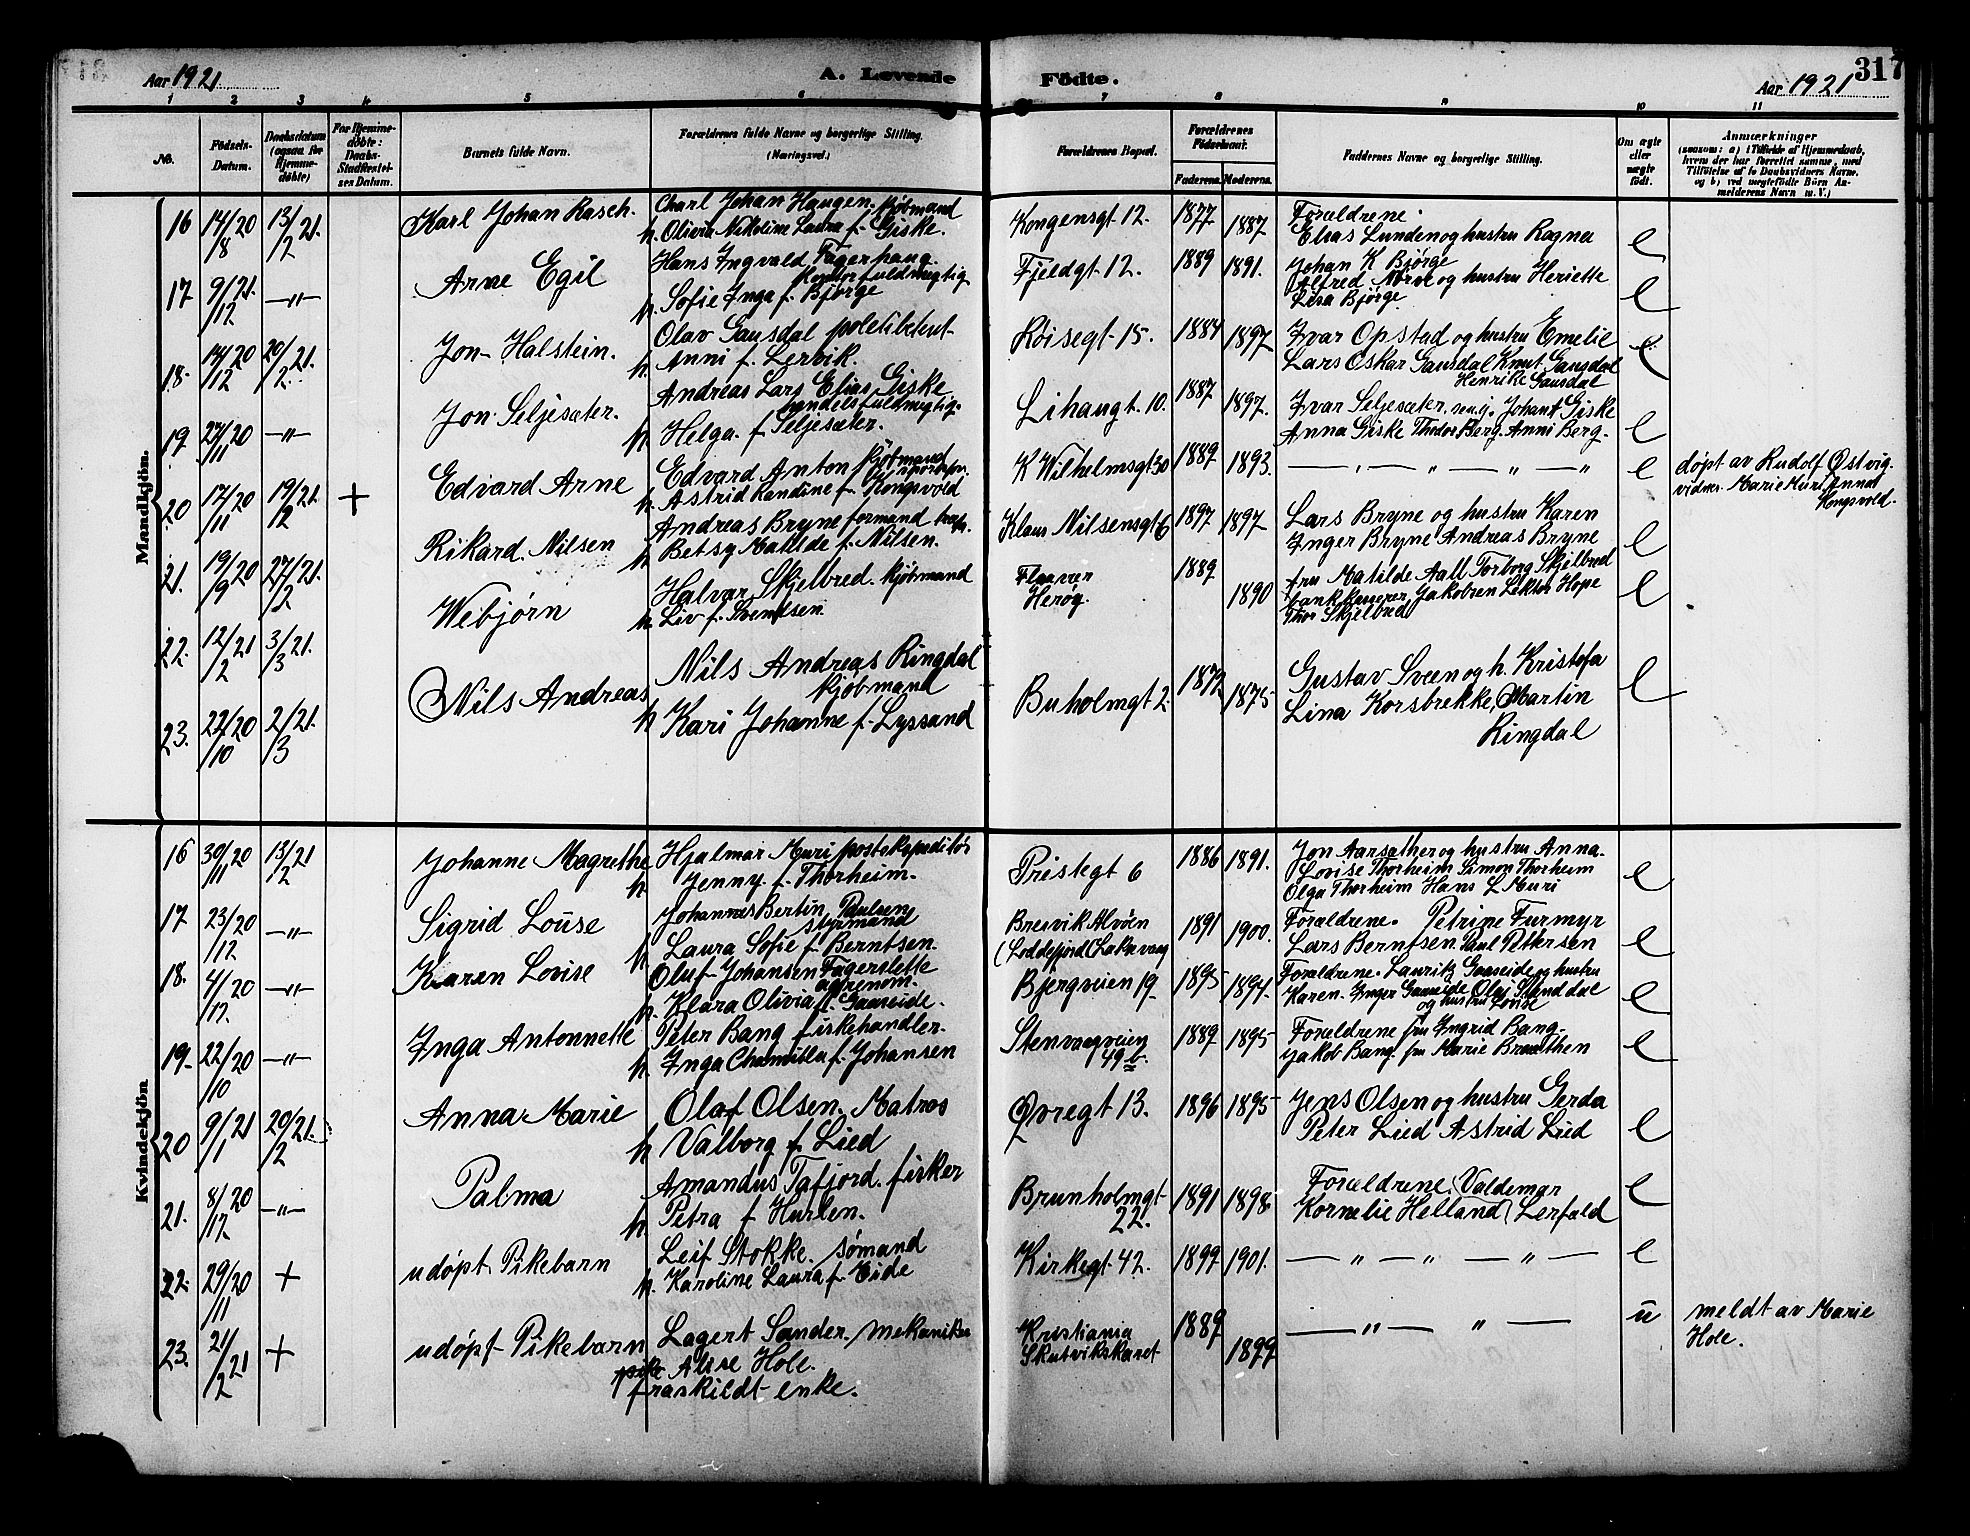 Aar 1921
A. Levende
Födte.
317
Aar 1921
1 2 3 4 5 6 7 8 9 10 11
No.
Födsels-Datum.
Daabsdatum (ogsaa for Hjemme-döbte)
For Hjemme-döbte: Daabs-Stadfæstel-ses Datum.
Barnets fulde Navn.
Forældrenes fulde Navne og borgerlige Stilling. (Næringsvei.)
Forældrenes Bopæl.
Forældrenes Födselsaar. Faderens. Moderens.
Faddernes Navne og borgerlige Stilling.
Om ægte eller uægte födt.
Anmærkninger
(saasom: a) i Tilfælde af Hjemmedaab, hvem der har forrettet samme, med Tilföielse af to Daabsvidners Navne, og b) ved uægtefödte Börn An-melderens Navn m. V.)
Mandkjön.
16 14/8 20 13/2 21. Karl Johan Rasch. Charl Johan Haugen. kjøbmand
h. Olivia Nikoline Laura f. Giske.
Kongensgt 12. 1877 1887 Forældrene.
Elias Lunden og hustru Ragna e
17. 9/12 21. —"— Arne Egil Hans Ingvald Fagerhaug.
Kontorfuldmegtig
h. Sofie Inga f. Bjørge
Fjeldgt. 12. 1889 1891. Johan K Bjørge
Alfred Norve og hustru Heriette
Lisa Bjørge e
18. 14/12 20 20/2 21. Jon Halstein. Olav Gausdal politibetent
h. Anni f. Lervik.
Røisegt 15. 1884 1897 Ivar Opstad og hustru Emelie
Lars Oskar Gausdal Knut Gausdal
Henrike Gausdal e
19. 27/11 20 —"— Jon Seljesæter. Andreas Lars Elias Giske
handelsfuldmegtig.
h. Helga f. Seljesæter.
Lihaugt. 10. 1887 1897. Ivar Seljesæter. Johan Giske
Anna Giske Thodor Berg. Anni Berg. e
20. 17/11 20 19/12 21. + Edvard Arne Edvard Anton kjøbmand
h. Astrid Randine f. Kongsvold
K Wilhelmsgt 30 1889 1893. — " — " — " — " e døpt av Rudolf Østvig.
vidner. Marie Muri Anna
Kongsvold.
21. 19/9 20 27/2 21. Rikard Nilsen Andreas Bryne formand
h. Betsy Matilde f. Nilsen.
Klaus Nilsensgt 6 1897 1897 Lars Bryne og hustru Karen
Inger Bryne Andreas Bryne e
22. 12/2 21 3/3 21. Webjørn Halvar Skjelbred. kjøbmand
h. Liv f. Svendsen
Flaaver
Herøy. 1889 1890 fru Matilde Aall Torborg Skjelbred
bankkasserer Jakobsen Lektor Hope
Thor Skjelbred e
23. 22/10 20 2/3 21. Nils Andreas Nils Andreas Ringdal
kjøbmand
h Kari Johanne f. Lyssand
Buholmgt 2. 1872 1875 Gustav Sveen og h. Kristofa
Lina Korsbrekke, Martin
Ringdal e
Kvindekjön
16 30/11 20 13/2 21 Johanne Magrethe Hjalmar Muri postekspeditør
h Jenny f. Thorheim.
Pristegt 6 1886 1891. Jon Aarsæther og hustru Anna.
Lovise Thorheim Simon Thorheim
Olga Thorheim Hans L Muri e
17 23/12 20 —"— Sigrid Louse Johannes Bertin Paulsen
styrmand
h Laura Sofie f. Berntsen.
Bresvik Alvøen
(Loddefjord Laksevaag 1891 1900. Forældrene. Petrine Furmyr
Lars Berntsen. Paul Pettersen e
18. 4/12 20 —"— Karen Lovise Oluf Johansen Fagerslette
agronom.
h. Klara Olivia f. Gaaseide.
Bjergveien 19 1895 1894. Forældrene. Lauritz Gaaseide og hustru
Karen. Inger Gaaseide Olaj Slenddal
og hustru Louise e
19 22/10 20 —"— Inga Antonnette Peter Bang fiskehandler.
h. Inga Chamilla f. Johansen
Stenvaagveien
49 b. 1889 1895 Forældrene fru Ingrid Bang.
Jakob Bang. fru Marie Braathen e
20 9/1 21 20/2 21. Anna Marie Olaf Olsen. Matros
h Valborg f. Lied
Øvregt 13. 1896 1895 Jens Olsen og hustru Gerda
Peter Lied Astrid Lied e
21. 8/12 20 —"— Palma Amandus Tafjord. fisker
h. Petra f Hurlen.
Brunholmgt
22. 1891 1898. Forældrene. Valdemar
Kornelie Helland (Lerfald e
22. 29/11 20 + udøpt Pikebarn Leif Stokke. sømand
h. Karoline Laura f. Eide
Kirkegt 42. 1899 1901. — " — " — " — e
23. 21/2 21 + udøpt Pikebarn Lagert Sander. mekaniker
pike Alise Hole.
fraskildt enke.
Kristiania
Skutvikskaret 1889 1899 — " — " — u meldt av Marie
Hole.